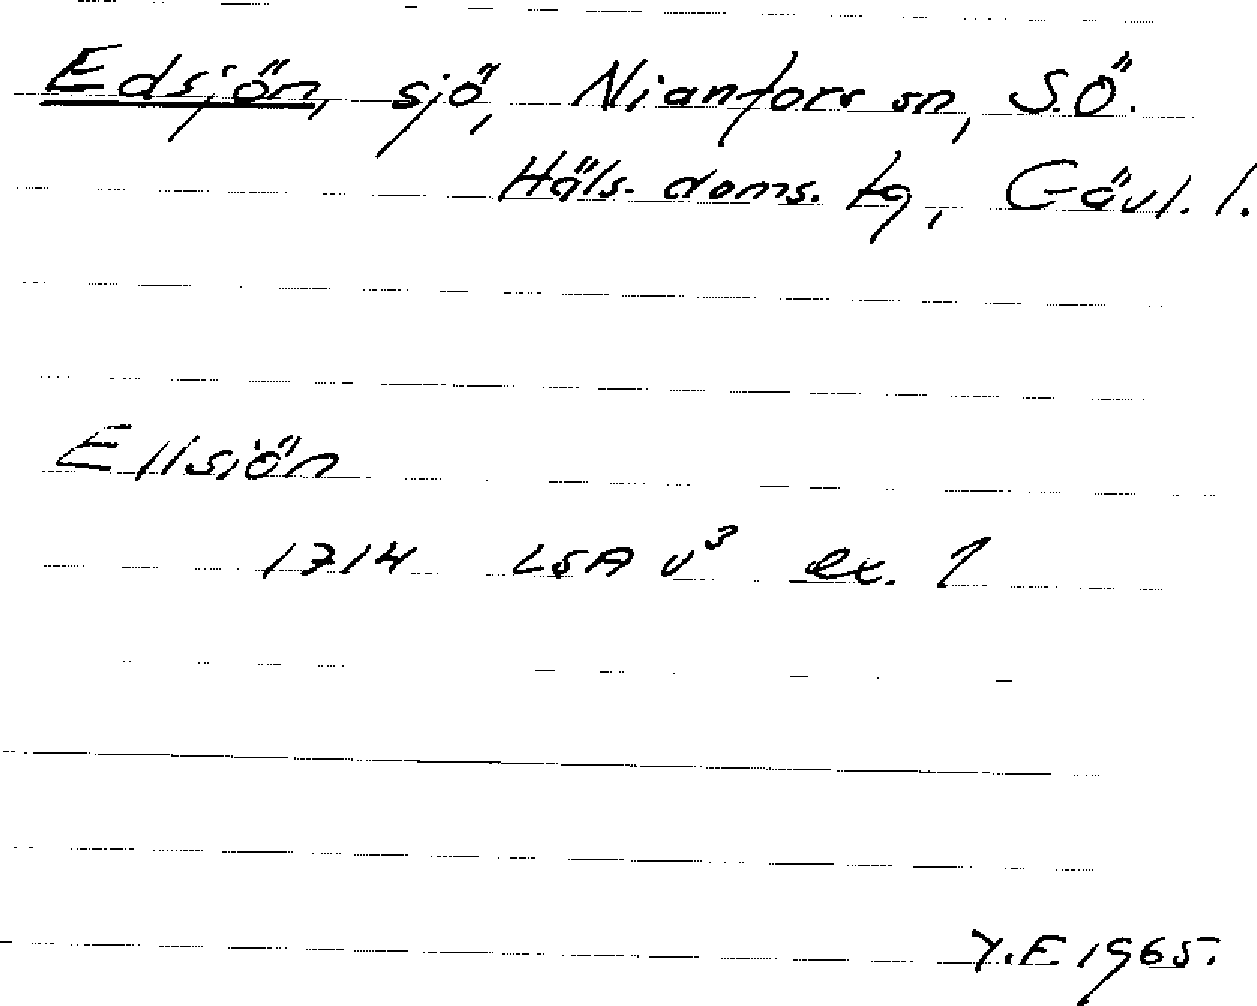 Edsjön, sjö, Nianfors sn, S.Ö.
Häls. doms. tg, Gävl. l.
Ellsiön
1714 LSA v³ ex. 1
Y.F. 1965.